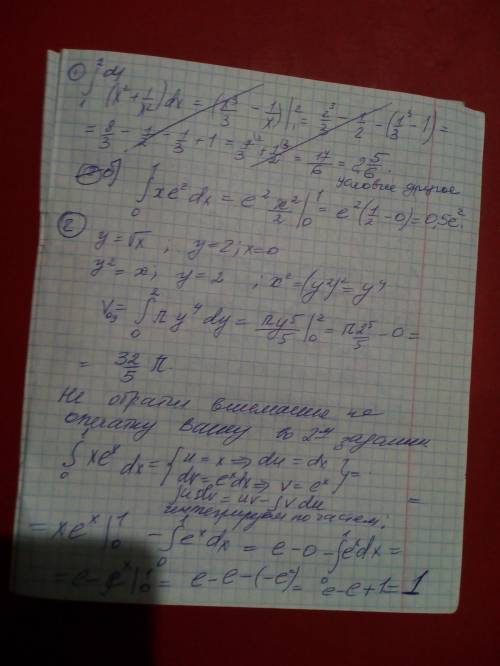 ① ∫₁² dy
(x² + 1/x²)dx = (x³/3 − 1/x)|₁² = 2³/3 − 1/2 − (1³/3 − 1) =
= 8/3 − 1/2 − 1/3 + 1 = 7/3 + 1/2 = 17/6 = 2 5/6.
условие другое
б) ∫₀¹ xe² dx = e² x²/2 |₀¹ = e²(1/2 − 0) = 0,5e².
②
y = √x , y = 2; x = 0
y² = x; y = 2 ; x² = (y²)² = y⁴
V = ∫₀² π y⁴ dy = πy⁵/5 |₀² = π 2⁵/5 − 0 =
= 32/5 π.
Не обратил внимание на
опечатку вашу во 2-м задании
∫₀¹ xeˣ dx = { u = x ⇒ du = dx
dv = eˣdx ⇒ v = eˣ } =
∫udv = uv − ∫v du
интегрируем по частям; =
= xeˣ |₀¹ − ∫₀¹ eˣ dx = e − 0 − ∫₀¹ eˣdx =
= e − eˣ|₀¹ = e − e − (−e⁰) = e − e + 1 = 1